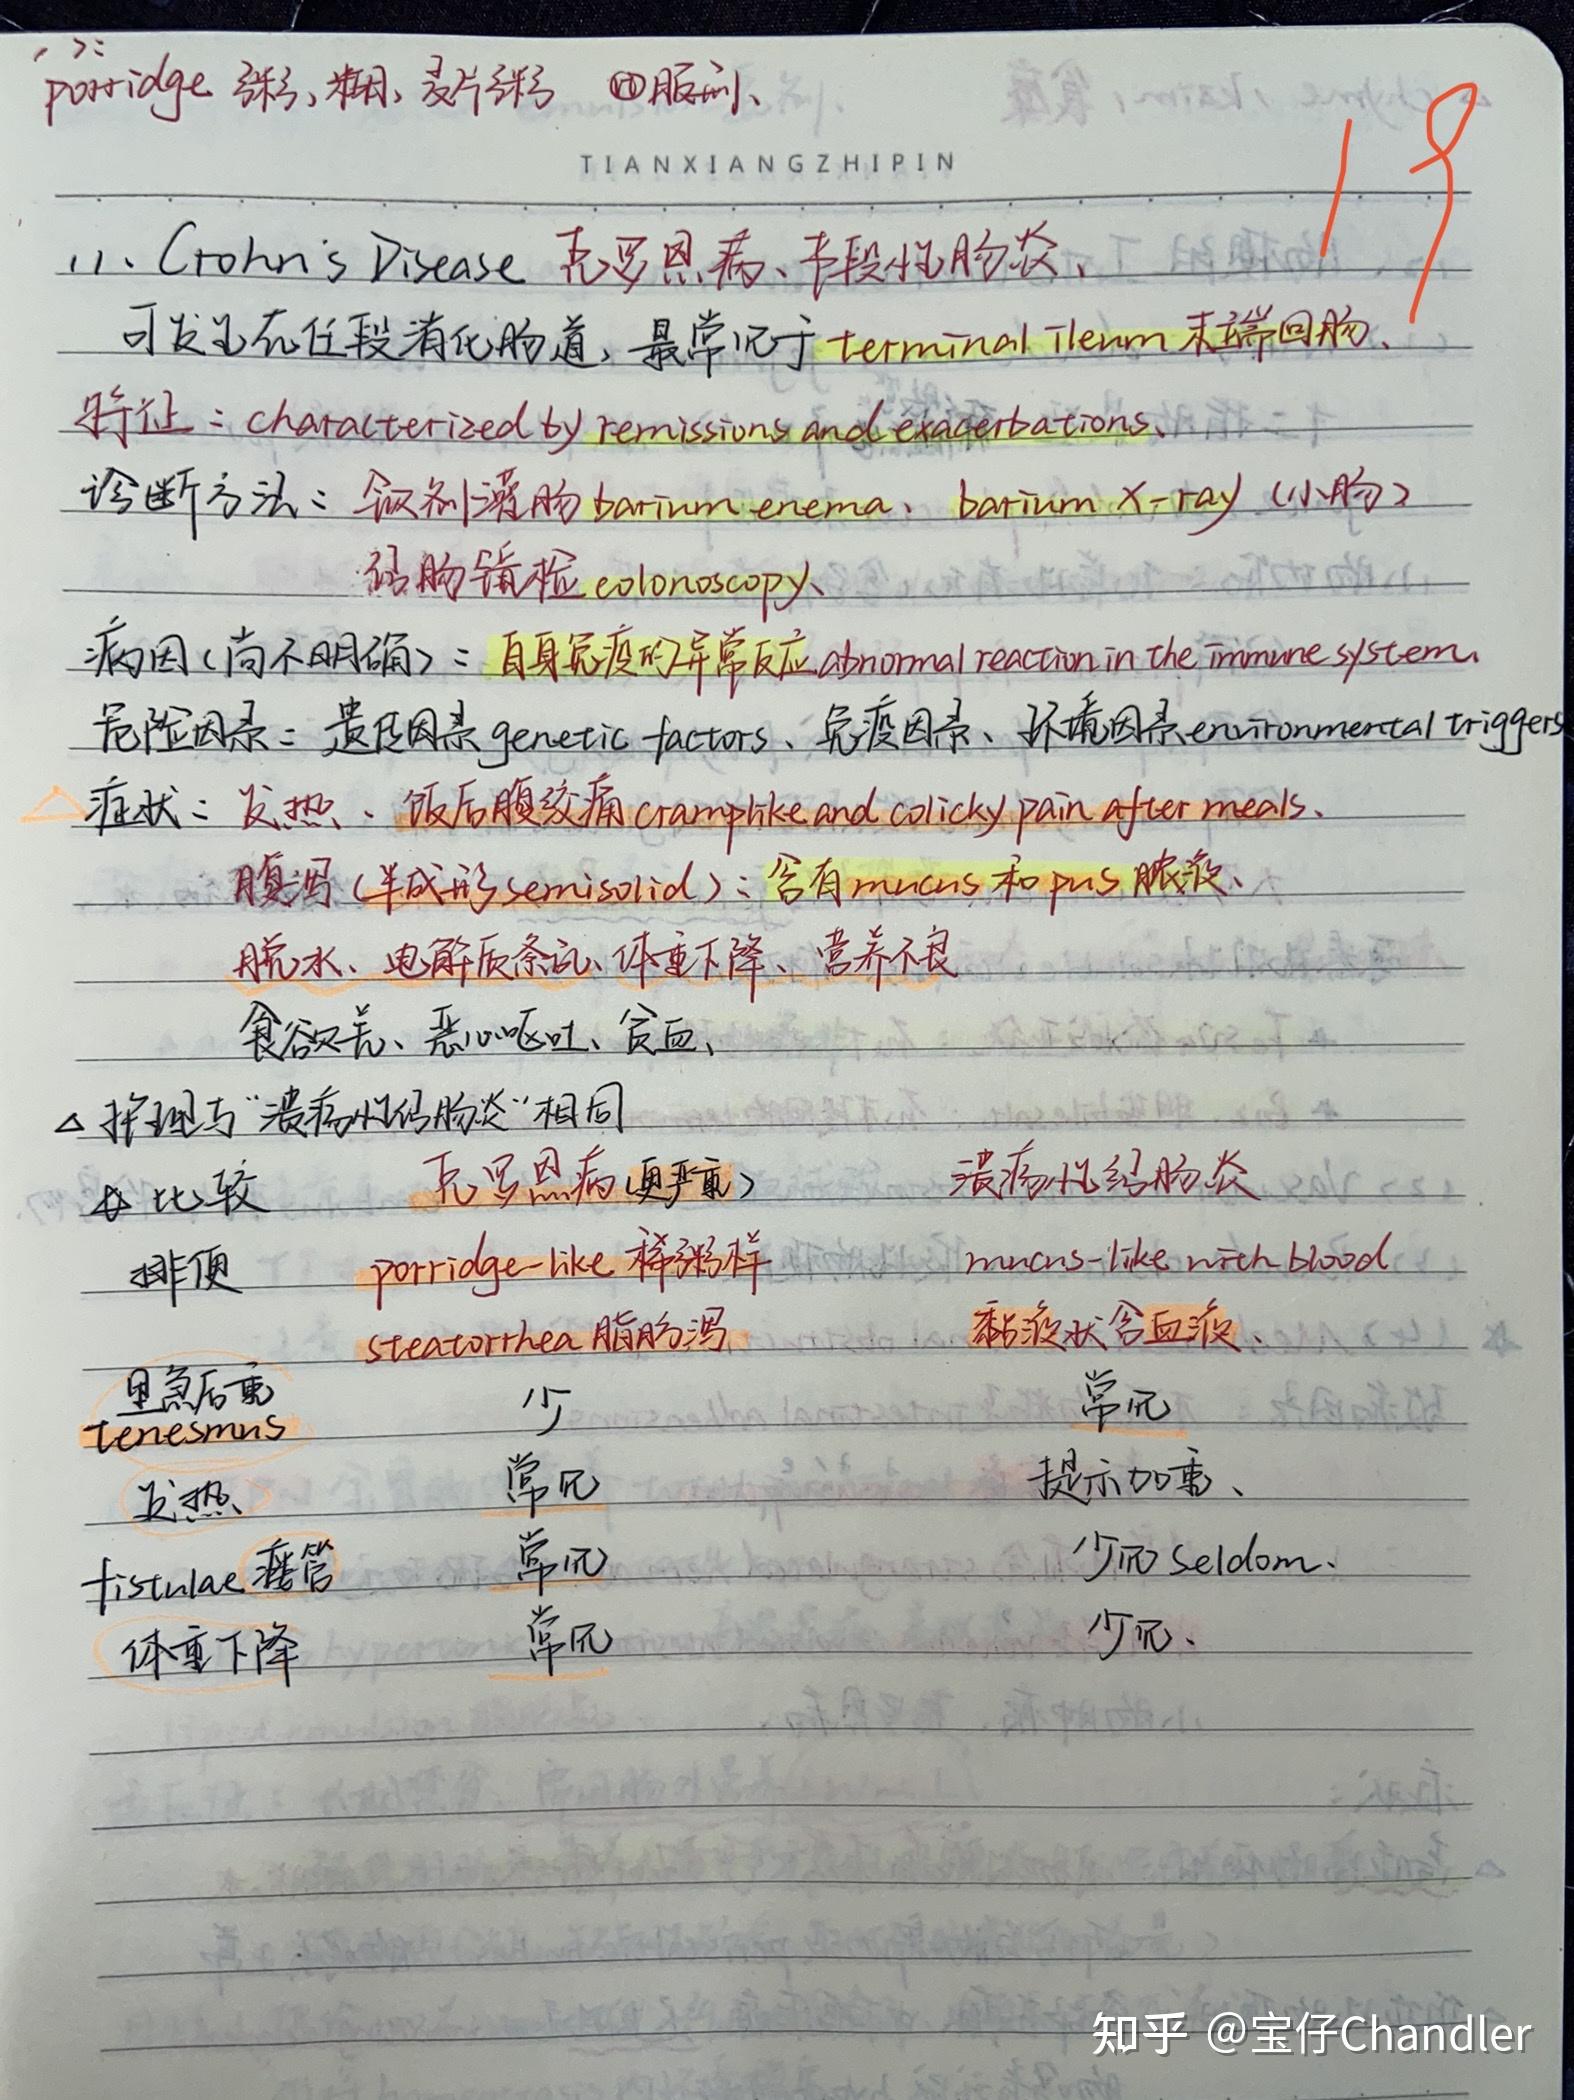 porridge 粥、糊、麦片粥 服刑、
19
TIANXIANGZHIPIN
11、Crohn's Disease 克罗恩病、节段性肠炎、
可发生在任段消化肠道，最常见于 terminal ileum 末端回肠、
特征：characterized by remissions and exacerbations、
诊断方法：钡剂灌肠 barium enema、barium X-ray（小肠）
结肠镜检 colonoscopy、
病因（尚不明确）：自身免疫的异常反应 abnormal reaction in the immune system、
危险因素：遗传因素 genetic factors、免疫因素、环境因素 environmental triggers
△症状：发热、饭后腹绞痛 cramplike and colicky pain after meals、
腹泻（半成形 semisolid）：含有 mucus 和 pus 脓液、
脱水、电解质紊乱、体重下降、营养不良
食欲差、恶心呕吐、贫血、
△护理与“溃疡性结肠炎”相同
☆比较 克罗恩病（更严重） 溃疡性结肠炎
排便 porridge-like 稀粥样 mucus-like with blood
steatorrhea 脂肪泻 黏液状含血液、
里急后重 少 常见
tenesmus
发热、 常见 提示加重、
fistulae 瘘管 常见 少见 seldom、
体重下降 常见 少见、
知乎 @宝仔Chandler